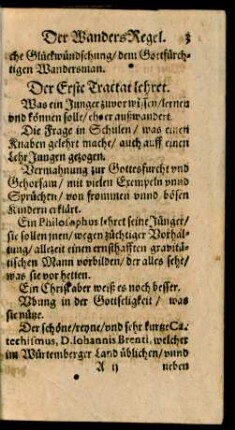 Der Wanders Regel. 3
che Glückwündschung/ dem Gottsfürch-
tigen Wandersman.
Der Erste Tractat lehret.
Was ein Junger zuvor wissen/ lernen
vnd können solle/ eh er außwandert.
Die Frage in Schulen/ was einen
Knaben gelehrt mache/ auch auff einen
Lehr Jungen gezogen.
Vermahnung zur Gottesfurcht vnd
Gehorsam/ mit vielen Exempeln vnnd
Sprüchen/ von frommen vnnd bösen
Kindern erklärt.
Ein Philosophus lehret seine Jünger/
sie sollen jnen/ wegen züchtiger Vorhal-
tung/ allezeit einen ernsthafften gravitä-
tischen Mann vorbilden/ der alles sehe/
was sie vor hetten.
Ein Christ aber weiß es noch besser.
Vbung in der Gottseligkeit/ was
sie nütze.
Der schöne/ reyne/ vnd sehr kurtze Ca-
techismus, D. Iohannis Brenti, welcher
im Würtemberger Land üblichen/ vnnd
A ij neben